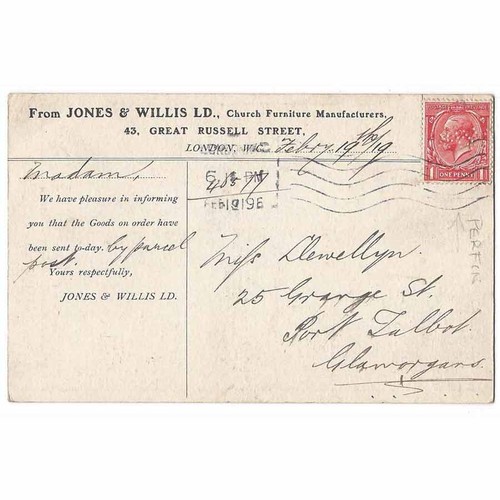 From JONES & WILLIS LD., Church Furniture Manufacturers,
43, GREAT RUSSELL STREET,
LONDON, W.C. Febry 19th/19
Madam,
We have pleasure in informing
you that the Goods on order have
been sent to-day. by parcel
post.
Yours respectfully,
JONES & WILLIS LD.
Miss Llewellyn.
25 Grange St.
Port Talbot.
Glamorgans.
1 ONE PENNY 1
PERFIN